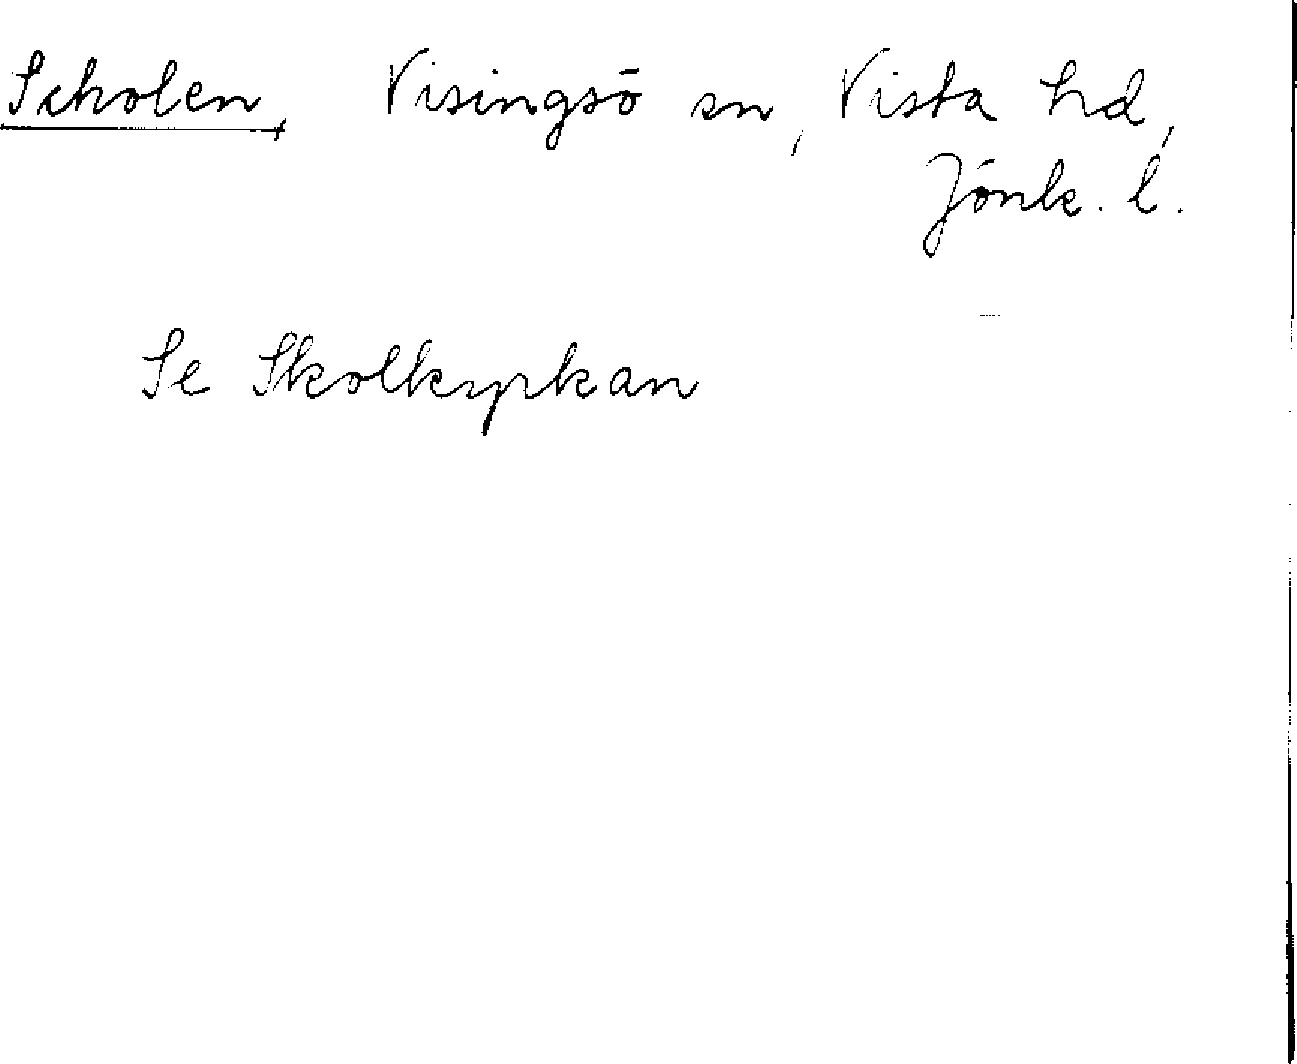 Scholen, Visingsö sn, Vista hd,
Jönk. l.
Se Skolkyrkan